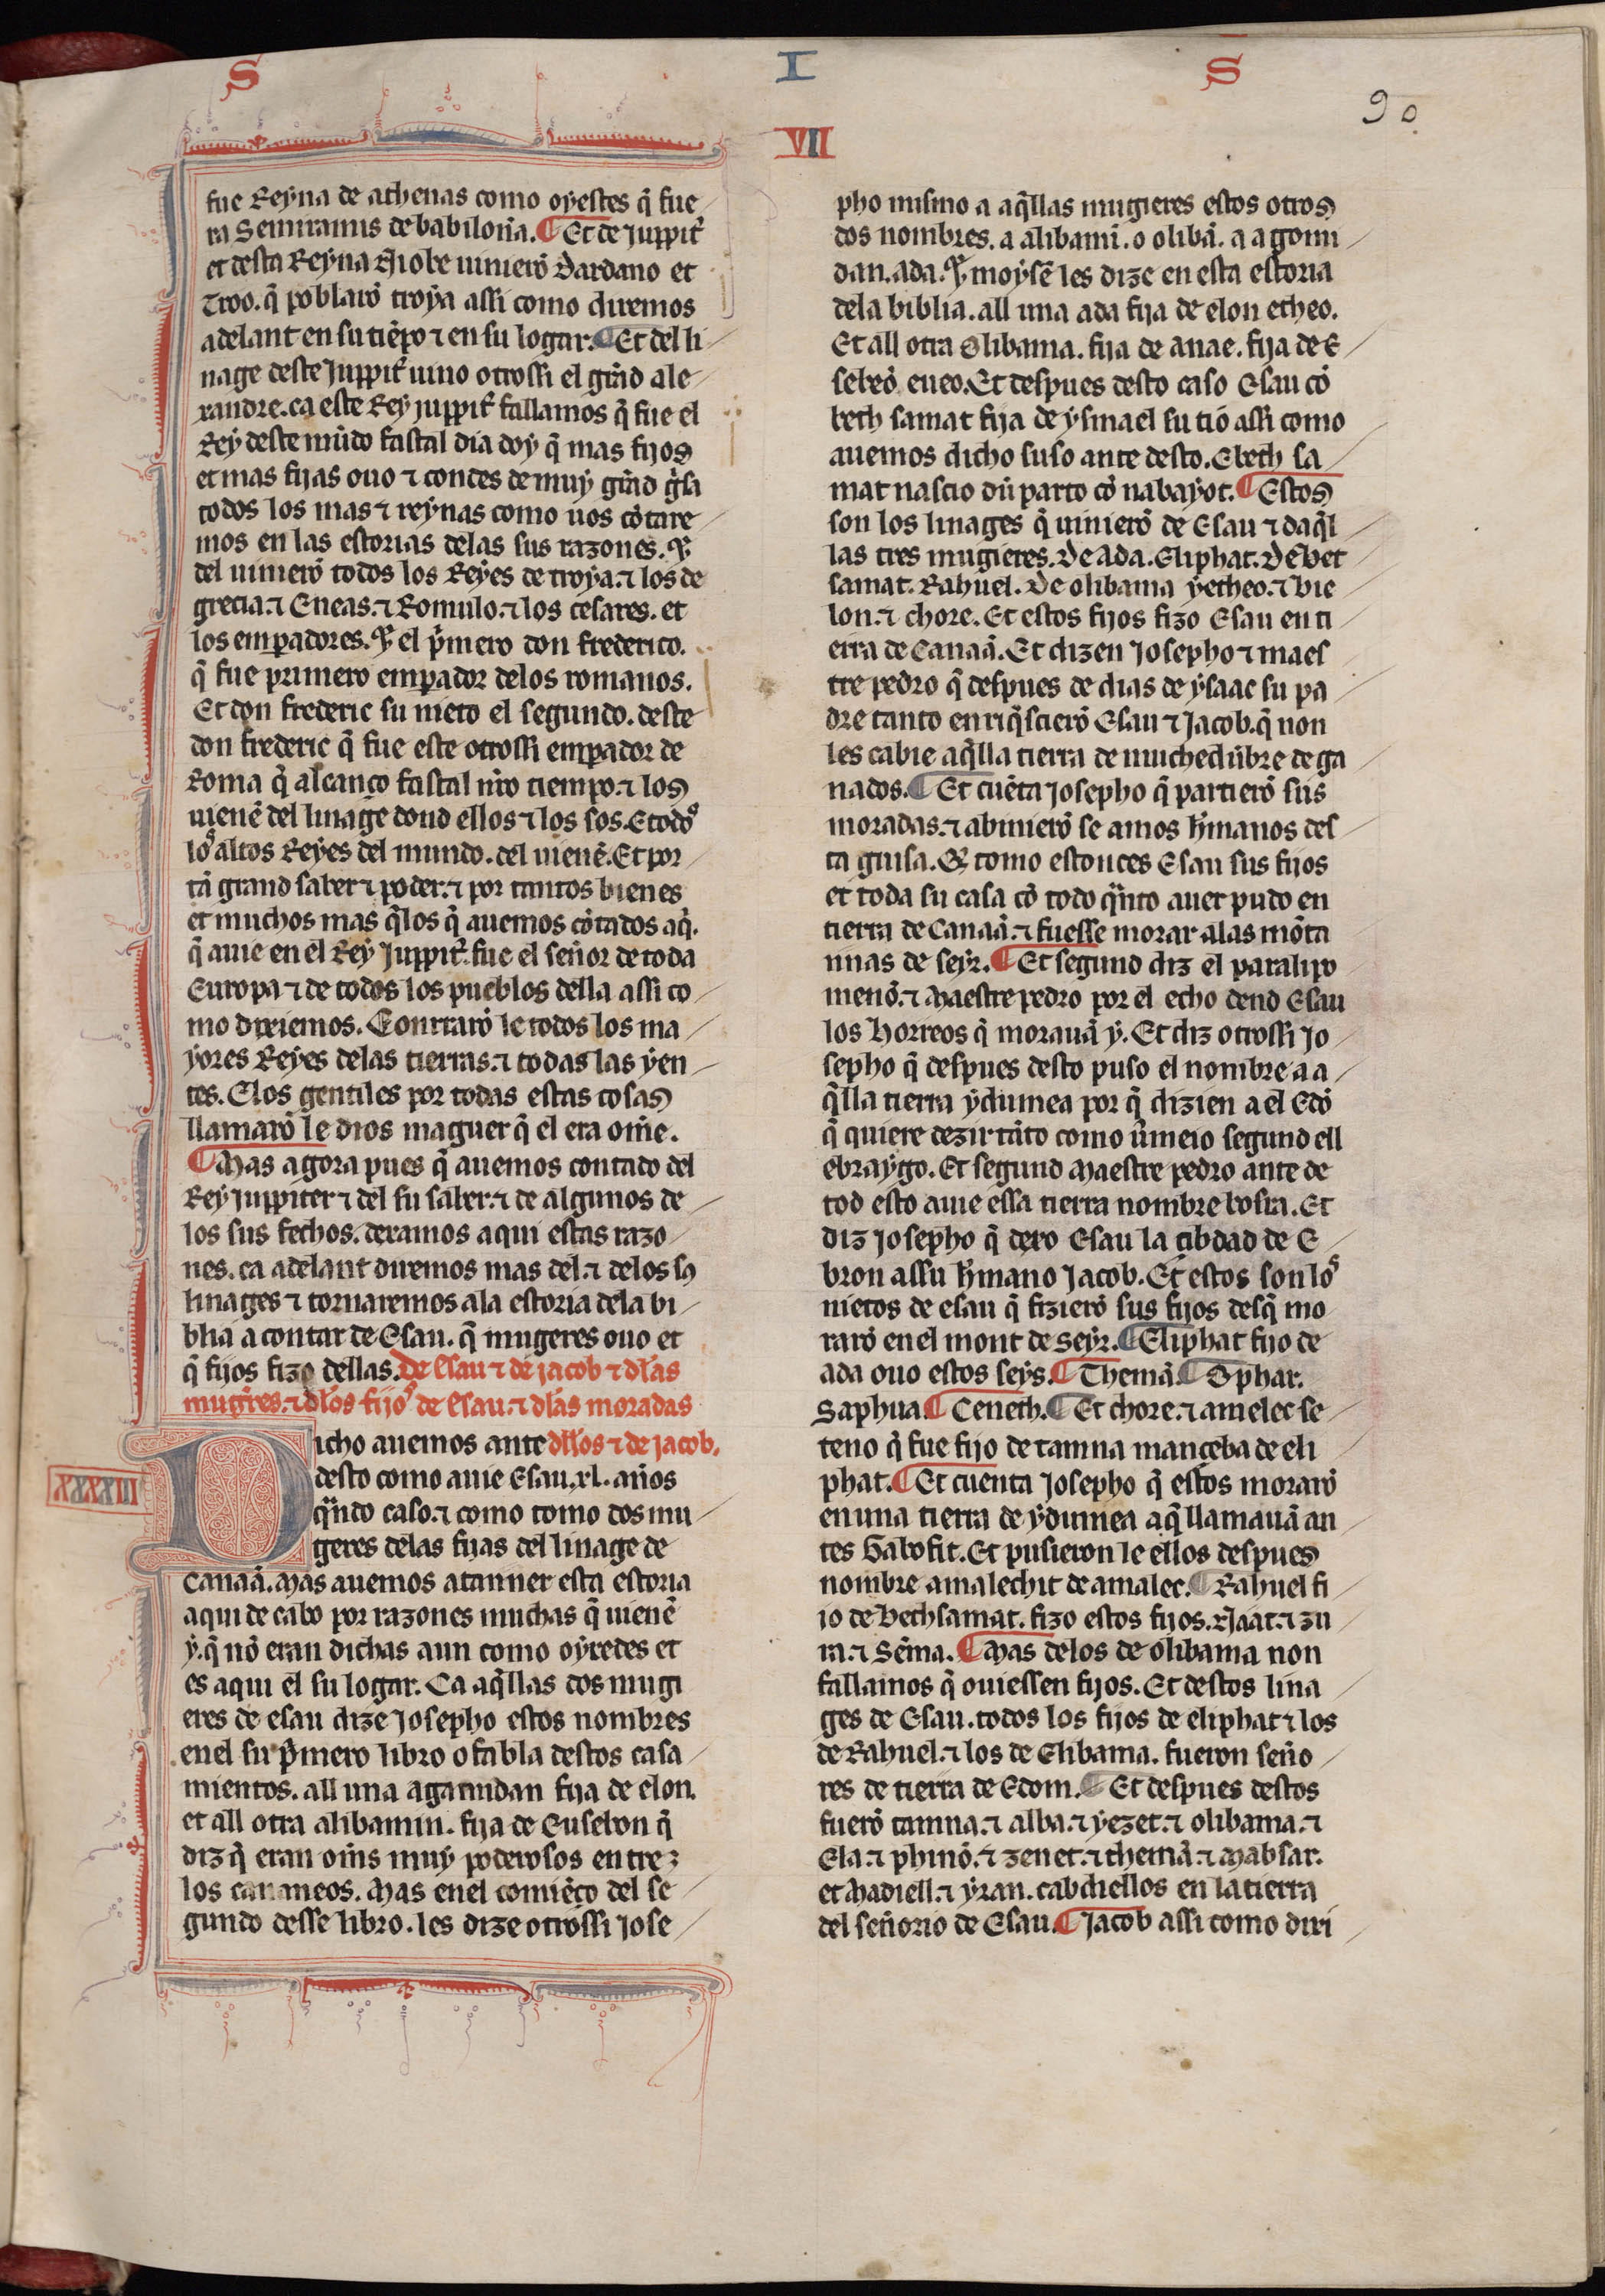 S I S
90
VII
fue Reyna de athenas como oyestes q̃ fue
ra Semiramis de babilonia. ¶ Et de juppit̃
et desta Reyna Niobe uinierõ Dardano et
Troo. q̃ poblarõ troya assi como diremos
adelant en su tiẽpo ⁊ en su logar. ¶ Et del li
nage deste Juppit̃ uino otrossi el grãd ale
xandre. ca este Rey juppit̃ fallamos q̃ fue el
Rey deste mũdo fastal dia doy q̃ mas fijos
et mas fijas ouo ⁊ condes de muy grãd g̃sa
todos los mas ⁊ reynas como uos cõtare
mos en las estorias delas sus razones. Et
del uinierõ todos los Reyes de troya. ⁊ los de
grecia. ⁊ Eneas. ⁊ Romulo. ⁊ los cesares. et
los emp̃adores. Et el p̃mero don frederico.
q̃ fue primero emp̃ador delos romanos.
Et don frederic su nieto el segundo. deste
don frederic q̃ fue este otrossi emp̃ador de
Roma q̃ alcanço fastal nr̃o tiempo. ⁊ los
uienẽ del linage dond ellos ⁊ los sos. E todos
los altos Reyes del mundo. del uienẽ. Et por
tã grand saber ⁊ poder. ⁊ por tantos bienes
et muchos mas q̃ los q̃ auemos cõtados aq̃.
q̃ auie en el Rey Juppit̃. fue el señor de toda
Europa ⁊ de todos los pueblos della assi co
mo dixiemos. Conttarõ le todos los ma
yores Reyes delas tierras. ⁊ todas las yen
tes. E los gentiles por todas estas cosas
llamarõ le dios maguer q̃ el era om̃e.
¶ Mas agora pues q̃ auemos contado del
Rey juppiter ⁊ del su saber. ⁊ de algunos de
los sus fechos. dexamos aqui estas razo
nes. ca adelant diremos mas del. ⁊ delos sus
linages ⁊ tornaremos ala estoria dela bi
blia a contar de Esau. q̃ mugeres ouo et
q̃ fijos fizo dellas. De Esau ⁊ de jacob ⁊ dl̃as
mugr̃es. ⁊ dl̃os fijos de Esau. ⁊ dl̃as moradas
Dicho auemos ante dl̃los ⁊ de jacob.
XXXXIII
desto como auie Esau .xl. años
q̃ndo caso. ⁊ como tomo dos mu
geres delas fijas del linage de
Canaã. Mas auemos atanner esta estoria
aqui de cabo por razones muchas q̃ uienẽ
y. q̃ nõ eran dichas aun como oyredes et
es aqui el su logar. Ca aq̃llas dos mugi
eres de esau dize Josepho estos nombres
en el su p̃mero libro o fabla destos casa
mientos. all una agannidan fija de elon.
et all otra alibamin. fija de Eusebon q̃
diz q̃ eran om̃s muy poderosos entre
los cananeos. Mas en el comiẽço del se
gundo desse libro. les dize otrossi jose
pho mismo a aq̃llas mugieres estos otros
dos nombres. a alibami. o olibã. a agonni
dan. ada. Et moysẽ les dize en esta estoria
dela biblia. all una ada fija de elon etheo.
Et all otra Olibama. fija de anae. fija de E
sebeõ eueo. Et despues desto caso Esau cõ
beth samat fija de ysmael su tio assi como
auemos dicho suso ante desto. E beth sa
mat nascio dũ parto cõ nabayot. ¶ Estos
son los linages q̃ uinierõ de Esau ⁊ daq̃l
las tres mugieres. De Ada. Eliphat. De bet
samat. Rahuel. De olibama yetheo. ⁊ bie
lon. ⁊ chore. Et estos fijos fizo Esau en ti
erra de Canaã. Et dizen Josepho ⁊ maes
tre pedro q̃ despues de dias de ysaac su pa
dre tanto enriq̃scierõ Esau ⁊ Jacob. q̃ non
les cabie aq̃lla tierra de muchedũbre de ga
nados. ¶ Et cuẽta josepho q̃ partierõ sus
moradas. ⁊ abinierõ se amos h̃manos des
ta guisa. Q̃ tomo estonces Esau sus fijos
et toda su casa cõ todo q̃nto auer pudo en
tierra de Canaã. ⁊ fuesse morar alas mõta
nnas de seyr. ¶ Et segund diz el paralipo
menõ. ⁊ Maestre pedro por el echo dend Esau
los horreos q̃ morauã y. Et diz otrossi Jo
sepho q̃ despues desto puso el nombre a a
q̃lla tierra ydumea por q̃ dizien a el Edõ
q̃ quiere dezir tãto como ũmeio segund ell
ebraygo. Et segund Maestre pedro ante de
tod esto auie essa tierra nombre bosra. Et
diz josepho q̃ dexo Esau la cibdad de E
bron assu h̃mano Jacob. Et estos son los
nietos de esau q̃ fizierõ sus fijos desq̃ mo
rarõ en el mont de Seyr. ¶ Eliphat fijo de
ada ouo estos seys. ¶ Themã. ¶ Ophar.
Saphua. ¶ Ceneth. ¶ Et chore. ⁊ amelec se
teno q̃ fue fijo de tamna manceba de eli
phat. ¶ Et cuenta Josepho q̃ estos morarõ
en una tierra de ydumea aq̃ llamauã an
tes Gabosit. Et pusieron le ellos despues
nombre amalechit de amalec. ¶ Rahuel fi
io de Bethsamat. fizo estos fijos. Naat. ⁊ zu
ra. ⁊ Sẽma. ¶ Mas delos de olibama non
fallamos q̃ ouiessen fijos. Et destos lina
ges de Esau. todos los fijos de eliphat ⁊ los
de Rahuel. ⁊ los de Elibama. fueron seño
res de tierra de Edom. ¶ Et despues destos
fuerõ tamna. ⁊ alba. ⁊ yezet. ⁊ olibama. ⁊
Ela. ⁊ phinõ. ⁊ zenet. ⁊ themã. ⁊ Mabsar.
et Madiell. ⁊ yran. cabdiellos en la tierra
del señorio de Esau. ¶ Jacob assi como dixi